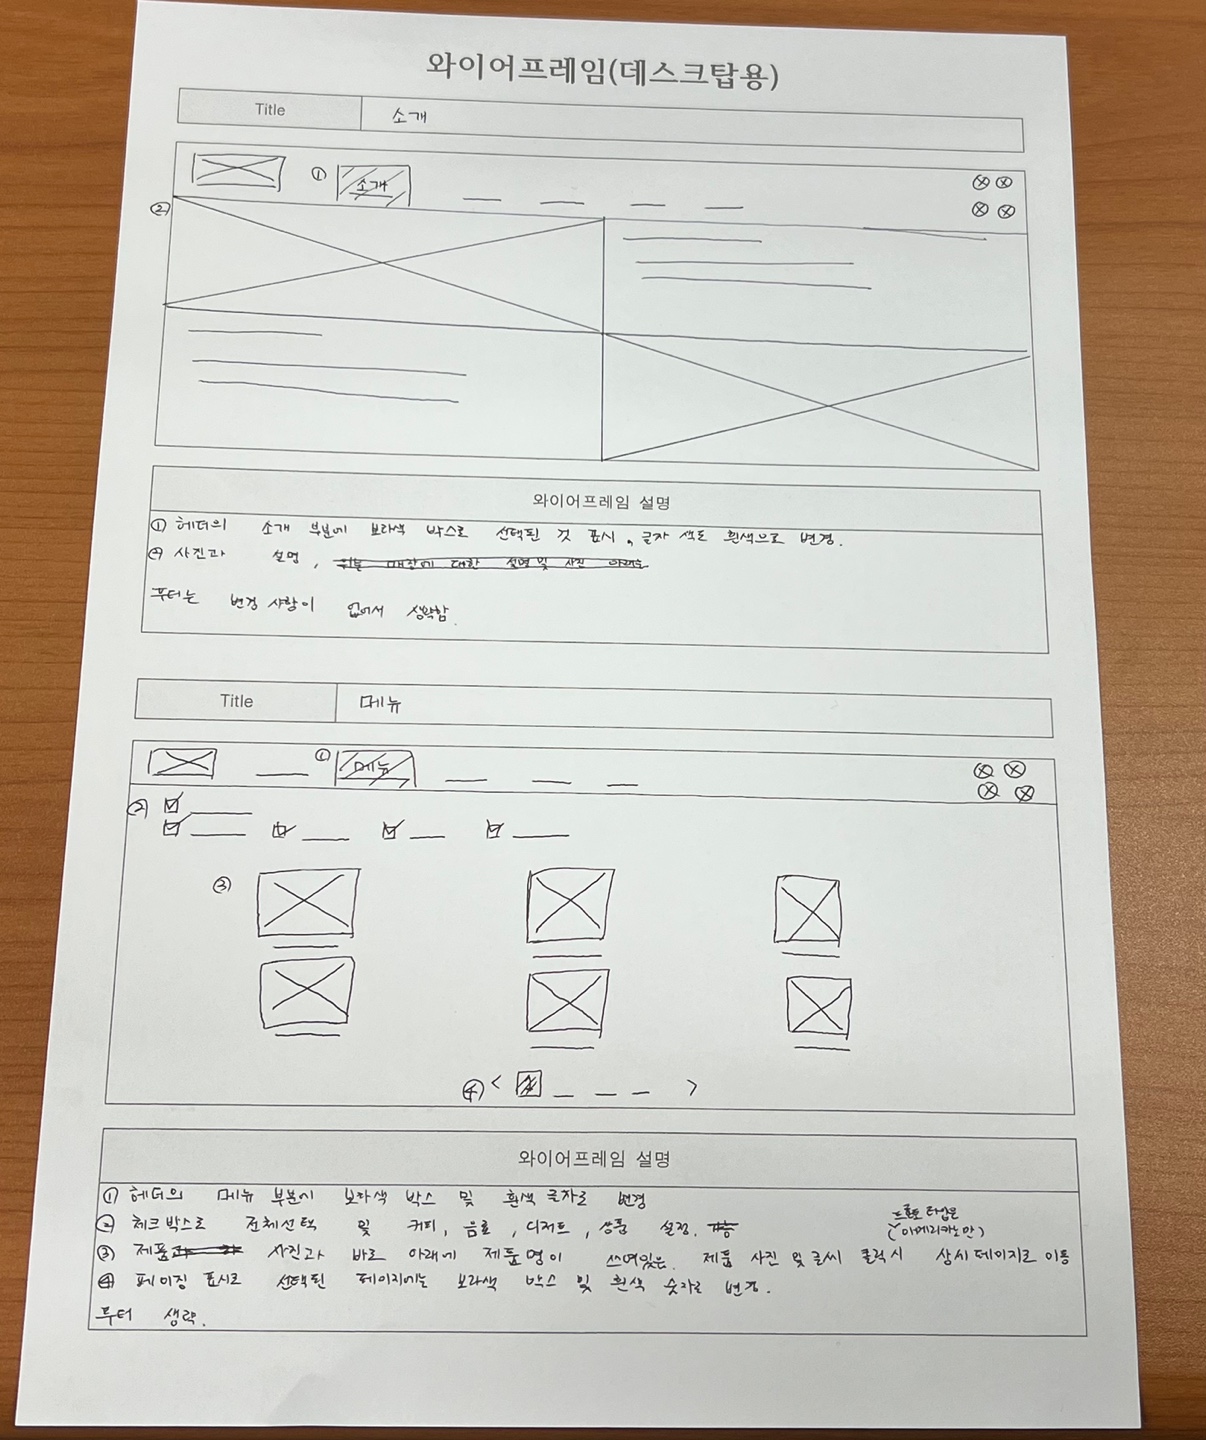 와이어프레임(데스크탑용)
Title 소개
① 소개
②
와이어프레임 설명
① 헤더의 소개 부분에 보라색 박스로 선택된 것 표시, 글자 색도 흰색으로 변경.
② 사진과 설명,
푸터는 변경 사항이 없어서 생략함.
Title 메뉴
① 메뉴
②
③
④ < >
와이어프레임 설명
① 헤더의 메뉴 부분이 보라색 박스 및 흰색 글자로 변경
② 체크박스로 전체선택 및 커피, 음료, 디저트, 상품 설정.
프로토타입은
(아메리카노만)
③ 제품 사진과 바로 아래에 제품명이 쓰여있음. 제품 사진 및 글씨 클릭시 상세페이지로 이동
④ 페이징 표시로 선택된 페이지에는 보라색 박스 및 흰색 숫자로 변경.
푸터 생략.